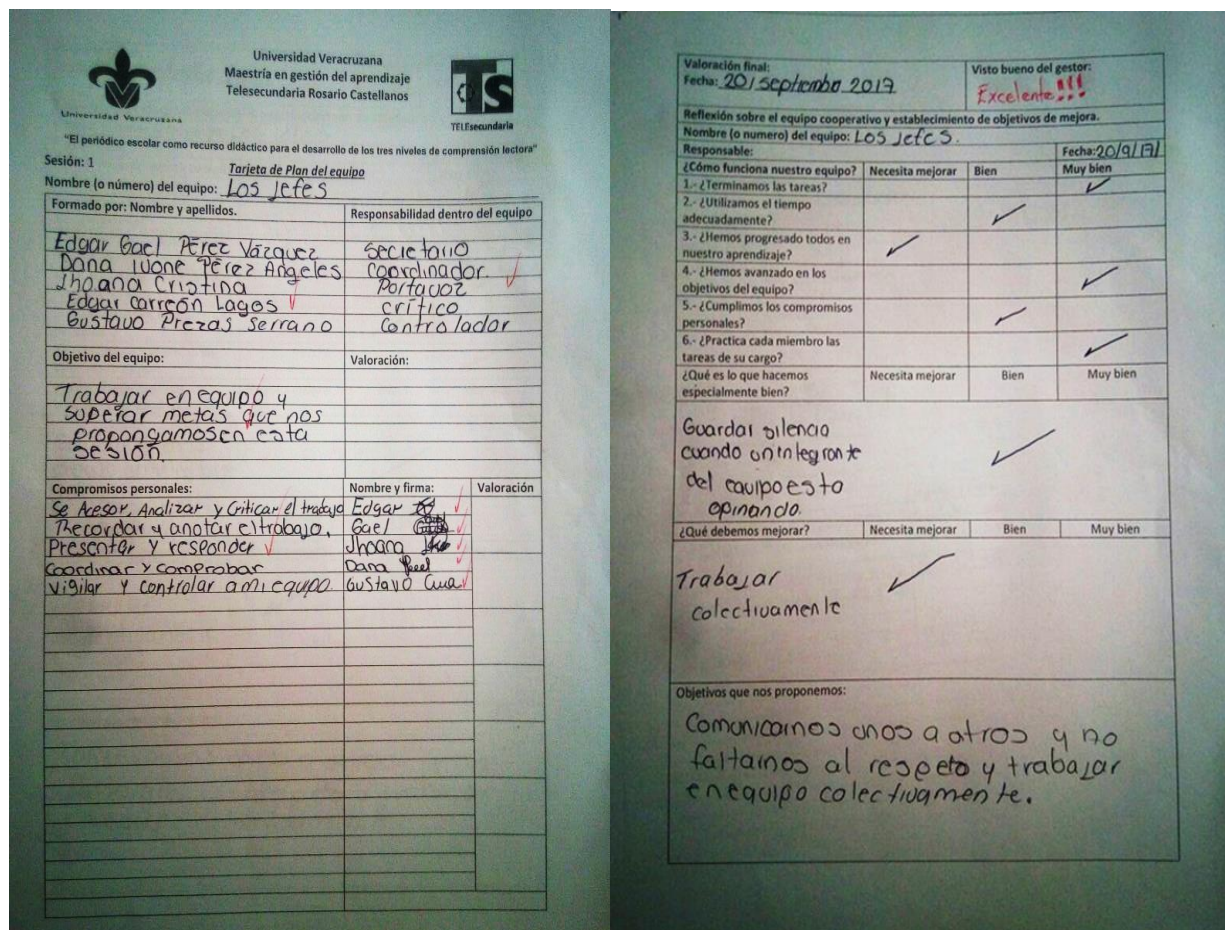 Universidad Veracruzana
Maestría en gestión del aprendizaje
Telesecundaria Rosario Castellanos
Universidad Veracruzana
TS
TELEsecundaria
"El periódico escolar como recurso didáctico para el desarrollo de los tres niveles de comprensión lectora"
Sesión: 1
Tarjeta de Plan del equipo
Nombre (o número) del equipo: Los jefes
Formado por: Nombre y apellidos. Responsabilidad dentro del equipo
Edgar Gael Pérez Vázquez secretario
Dana Ivone Pérez Angeles coordinador
Jhoana Cristina Portavoz
Edgar carreón Lagos crítico
Gustavo Prezas Serrano Controlador
Objetivo del equipo: Valoración:
Trabajar en equipo y
superar metas que nos
propongamos en esta
sesión.
Compromisos personales: Nombre y firma: Valoración
Se Acesor, Analizar y Criticar el trabajo Edgar
Recordar y anotar el trabajo. Gael
Presentar y responder Jhoana
Coordinar y comprobar Dana
Vigilar y controlar a mi equipo. Gustavo
Valoración final:
Fecha: 20/septiembre 2017
Visto bueno del gestor:
Excelente!!!
Reflexión sobre el equipo cooperativo y establecimiento de objetivos de mejora.
Nombre (o numero) del equipo: Los jefes.
Responsable: Fecha: 20/9/17/
¿Cómo funciona nuestro equipo? Necesita mejorar Bien Muy bien
1.- ¿Terminamos las tareas?
2.- ¿Utilizamos el tiempo
adecuadamente?
3.- ¿Hemos progresado todos en
nuestro aprendizaje?
4.- ¿Hemos avanzado en los
objetivos del equipo?
5.- ¿Cumplimos los compromisos
personales?
6.- ¿Practica cada miembro las
tareas de su cargo?
¿Qué es lo que hacemos
especialmente bien?
Necesita mejorar Bien Muy bien
Guardar silencio
cuando un integrante
del equipo esta
opinando.
¿Qué debemos mejorar? Necesita mejorar Bien Muy bien
Trabajar
colectivamente
Objetivos que nos proponemos:
Comunicarnos unos a otros y no
faltarnos al respeto y trabajar
en equipo colectivamente.